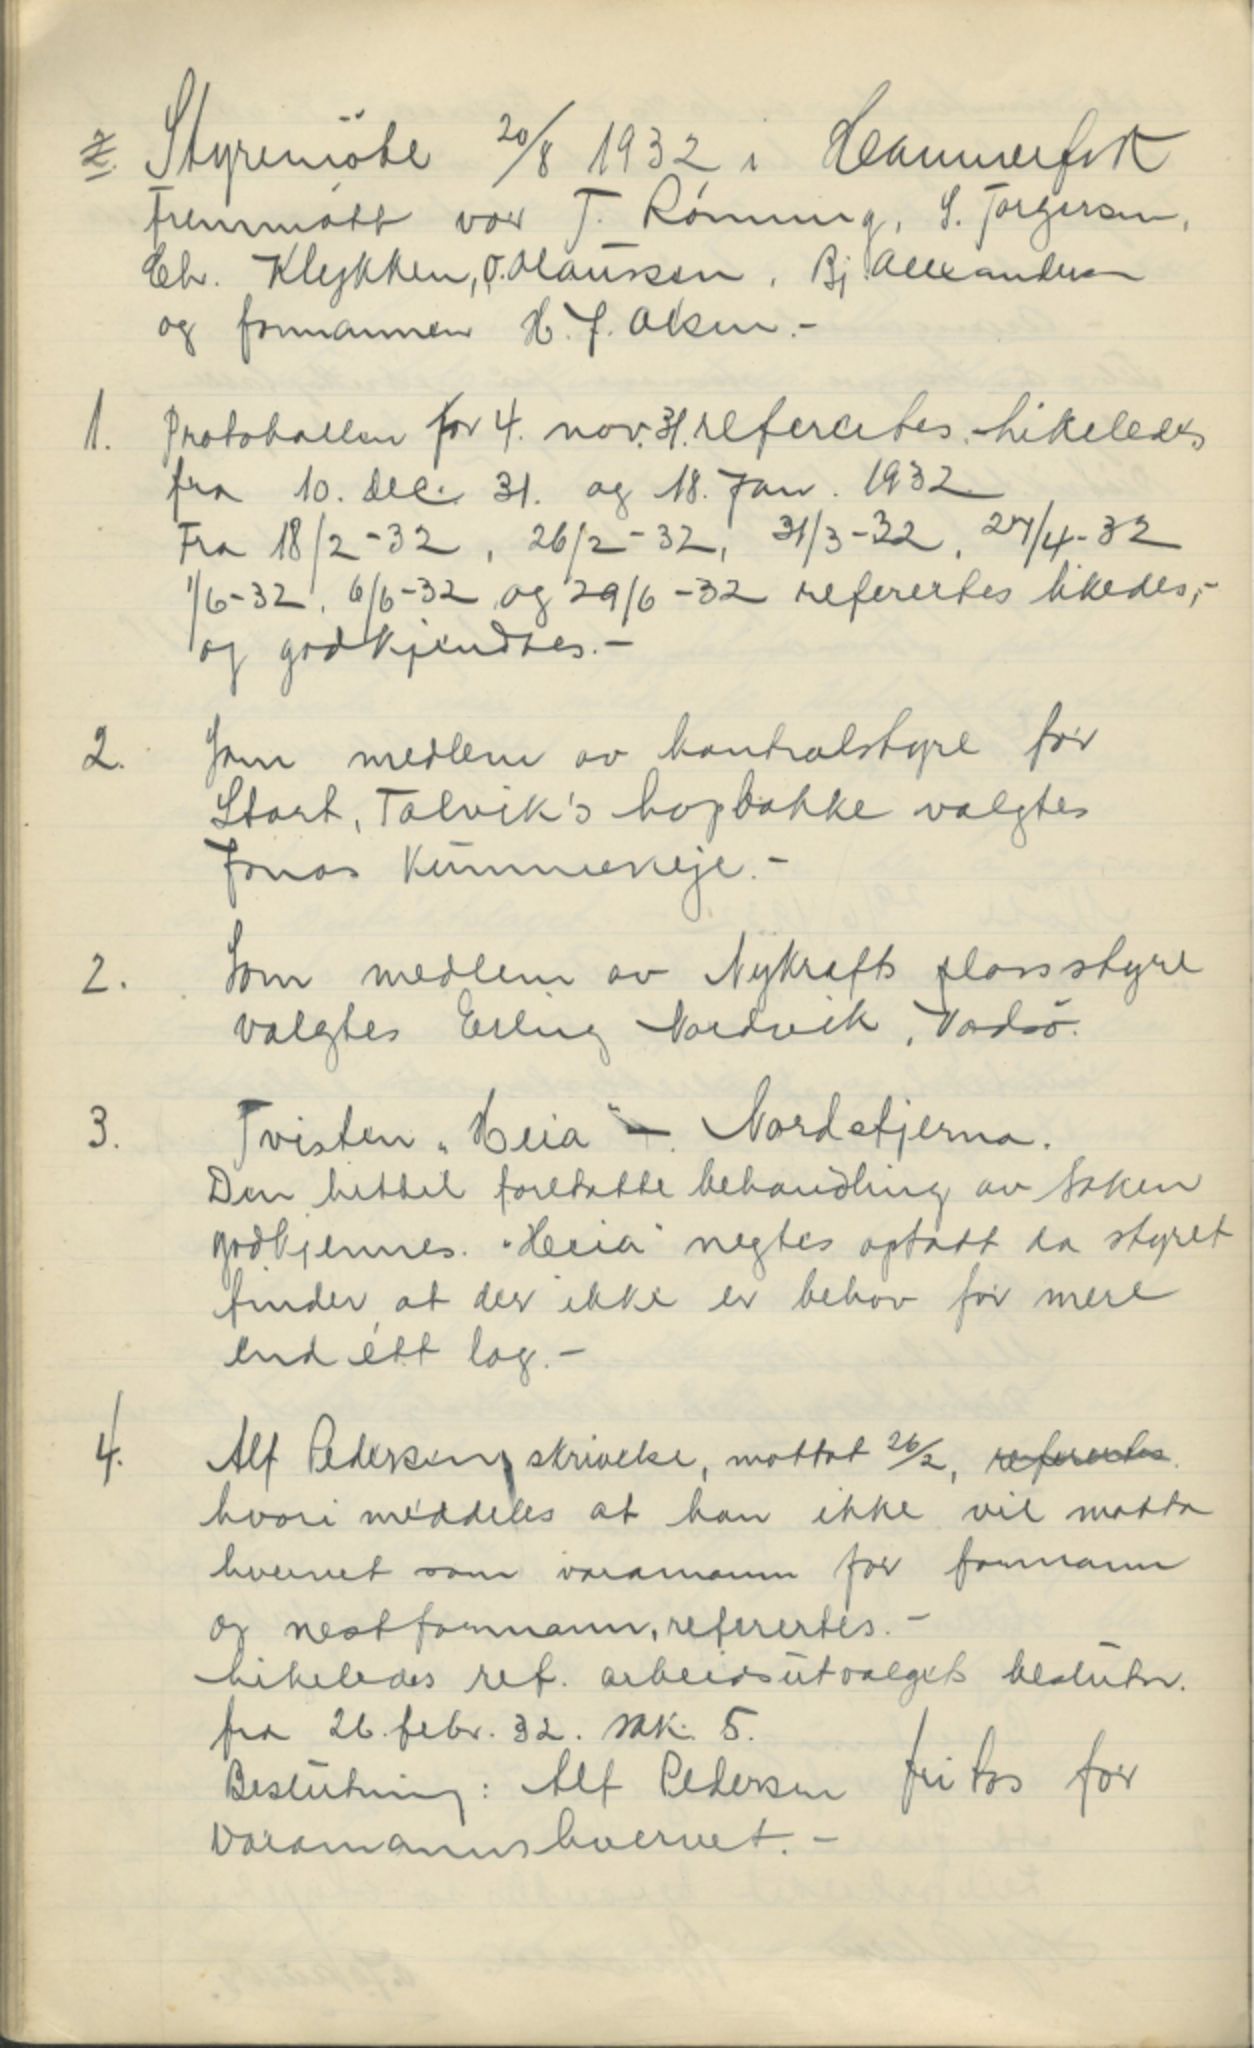 Styremöte 20/8 1932 i Hammerfest
Fremmött var T. Rönning, S. Torgersen,
Chr. Klykken, O. Olaussen, Bj Alexandersen
og formannen H. J. Olsen.-
1. Protokollen for 4. nov. 31. refereertes. Likeledes
fra 10. dec. 31. og 18. Jan. 1932
Fra 18/2-32, 26/2-32, 31/3-32, 27/4-32
1/6-32, 6/6-32 og 29/6-32 referertes likedes,-
og godkjendtes.-
2. Som medlem av kontrolstyre for
Start, Talvik's hopbakke valgtes
Jonas Kummeneje.-
2. Som medlem av Nykrafts plassstyre
valgtes Erling Nordvik, Vadsö.
3. Tvisten "Heia" - Nordstjerna.
Den hittil foretatte behandling av saken
godkjennes. "Heia" negtes optatt da styret
finder at der ikke er behov for mere
end étt lag.-
4. Alf Pedersens skrivelse, mottat 26/2, referertes
hvori meddeles at han ikke vil motta
hvervet som varamann for formann
og nestformann, referertes.-
Likeledes ref. arbeidsutvalgets beslutn.
fra 26. febr. 32. sak. 5.
Beslutning: Alf Pedersen fritas for
varamannshvervet.-